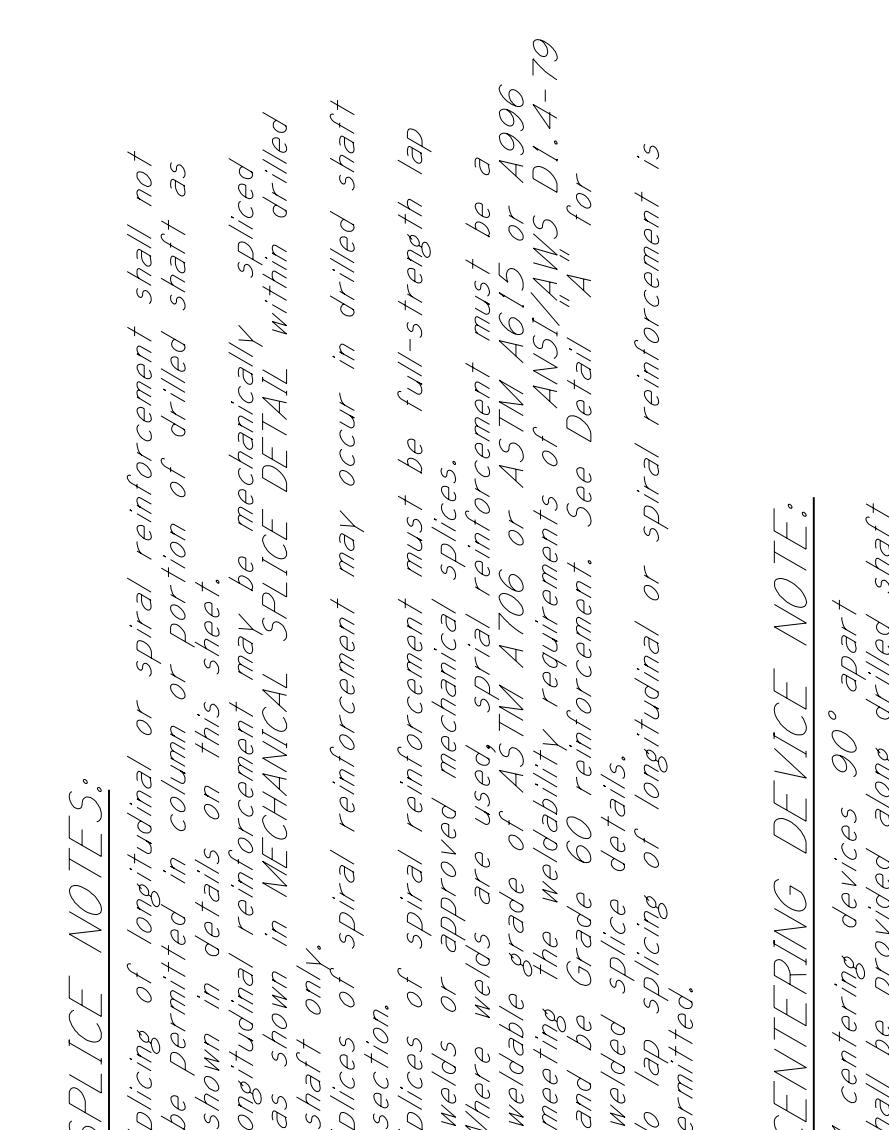 SPLICE NOTES:
plicing of longitudinal or spiral reinforcement shall not
be permitted in column or portion of drilled shaft as
shown in details on this sheet.
ongitudinal reinforcement may be mechanically spliced
as shown in MECHANICAL SPLICE DETAIL within drilled
shaft only.
plices of spiral reinforcement may occur in drilled shaft
section.
plices of spiral reinforcement must be full-strength lap
welds or approved mechanical splices.
Where welds are used, sprial reinforcement must be a
weldable grade of ASTM A706 or ASTM A615 or A996
meeting the weldability requirements of ANSI/AWS D1.4-79
and be Grade 60 reinforcement. See Detail "A" for
welded splice details.
o lap splicing of longitudinal or spiral reinforcement is
ermitted.
CENTERING DEVICE NOTE:
centering devices 90° apart
hall be provided along drilled shaft